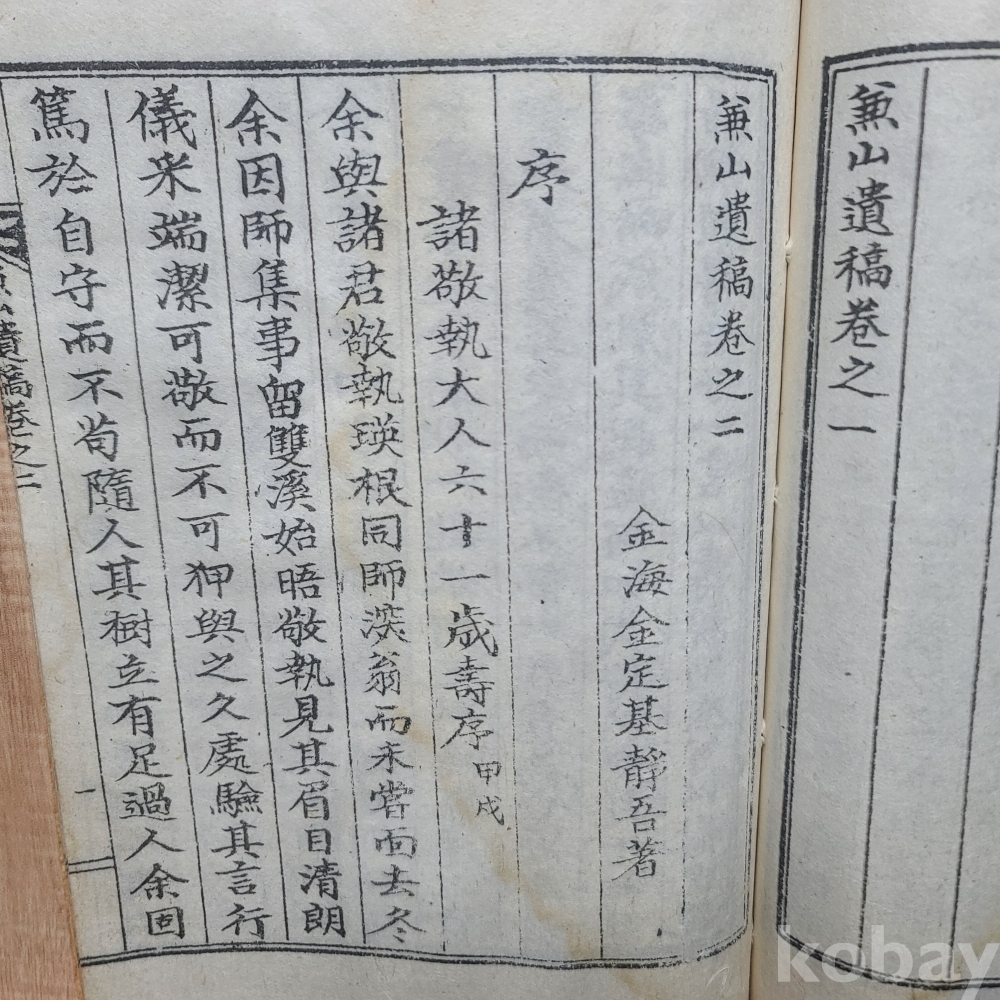 兼山遺稿卷之一
兼山遺稿卷之二
金海金定基靜吾著
序
諸敬執大人六十一歲壽序 甲戌
余與諸君敬執瑛根同師淡翁而未嘗面去冬
余因師集事留雙溪始晤敬執見其眉目清朗
儀采端潔可敬而不可狎與之久處驗其言行
篤於自守而不苟隨人其樹立有足過人余固
遺稿卷之二
一
kobay